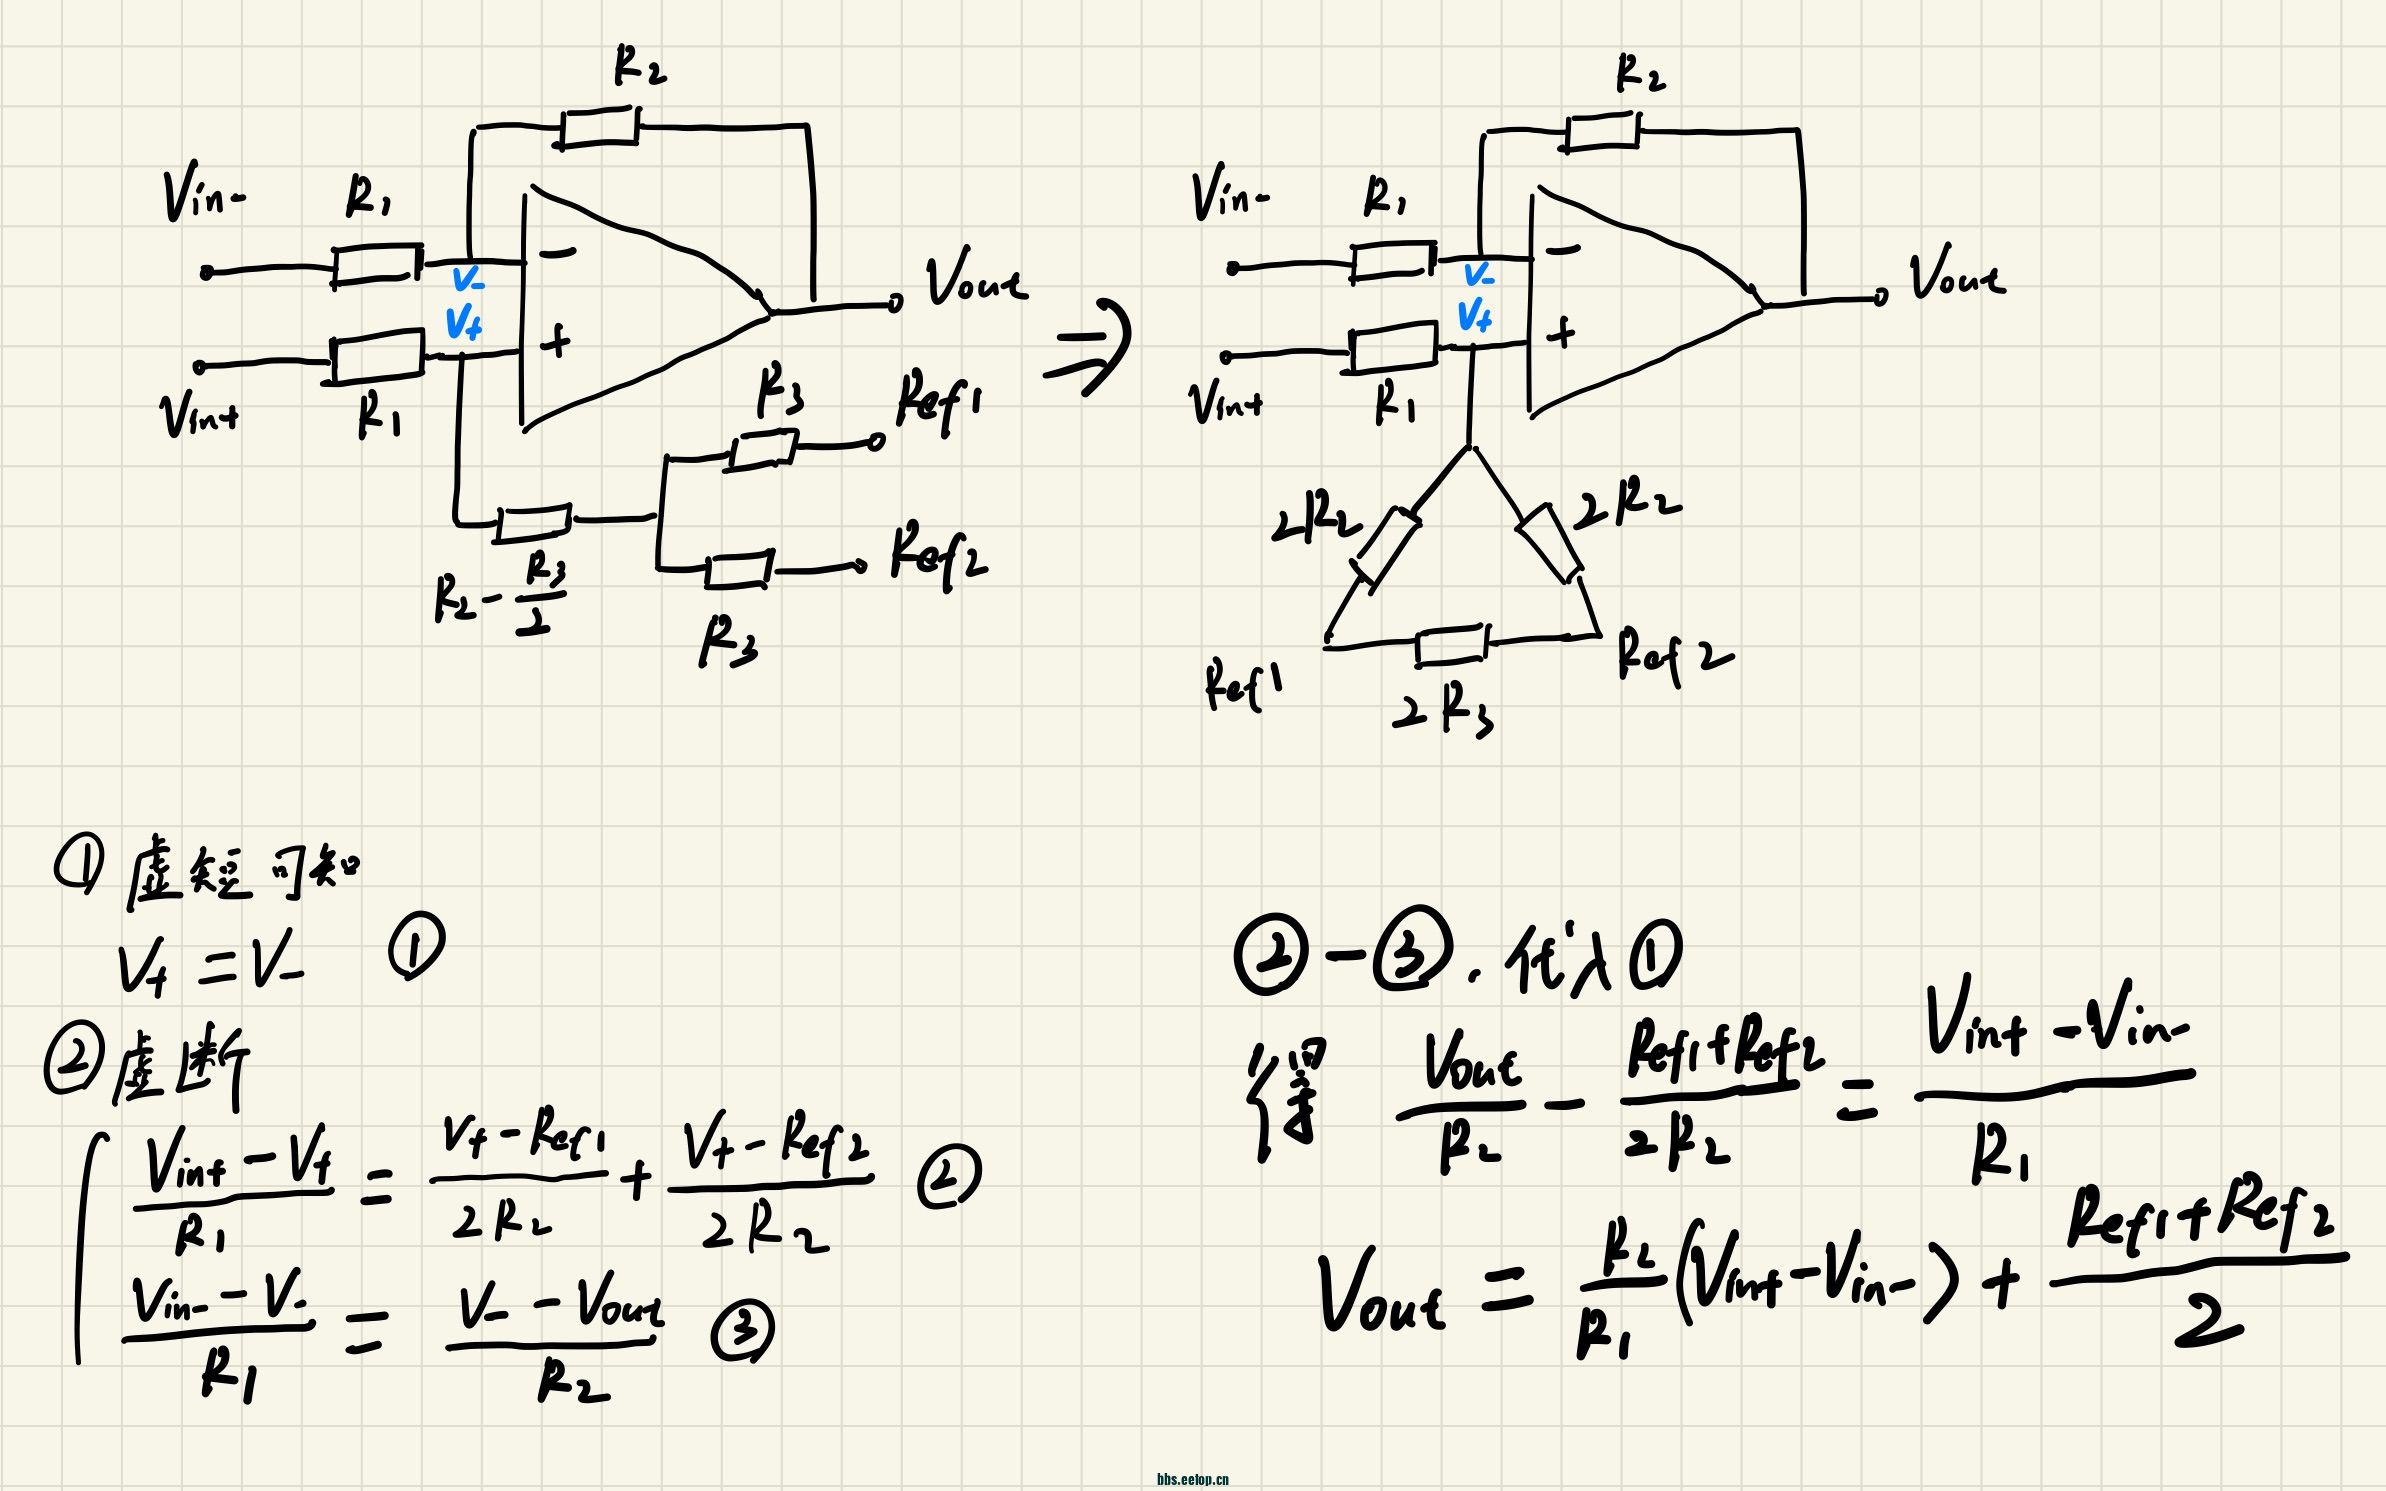 R₂
Vin-
R₁
V-
V+
−
+
Vout
Vin+
R₁
R₃
Ref1
R₂ - R₃/2
Ref2
R₃
⇒
R₂
Vin-
R₁
V-
V+
−
+
Vout
Vin+
R₁
2R₂
2R₂
Ref1
Ref2
2R₃
① 虚短可知
V+ = V- ①
② 虚断
(Vin+ - V+)/R₁ = (V+ - Ref1)/2R₂ + (V+ - Ref2)/2R₂ ②
(Vin- - V-)/R₁ = (V- - Vout)/R₂ ③
② - ③. 代入①
得 Vout/R₂ - (Ref1+Ref2)/2R₂ = (Vin+ - Vin-)/R₁
Vout = R₂/R₁ (Vin+ - Vin-) + (Ref1+Ref2)/2
bbs.eetop.cn